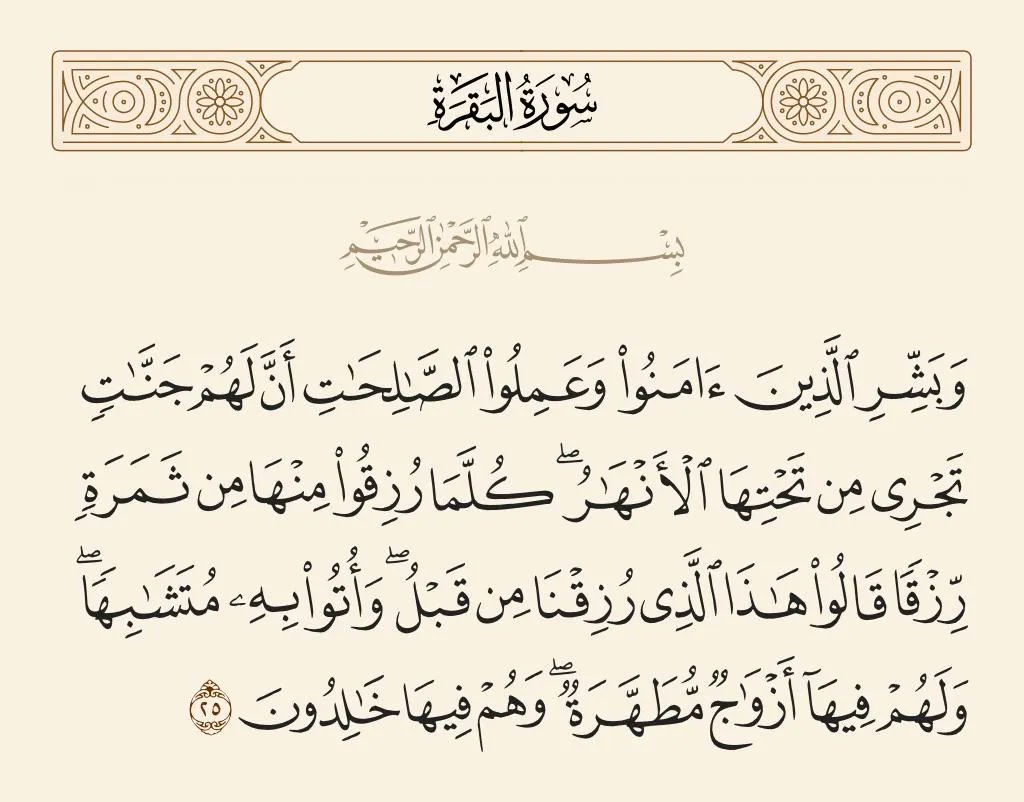 سُورَةُ البَقَرَةِ
بِسْمِ ٱللَّهِ ٱلرَّحْمَٰنِ ٱلرَّحِيمِ
وَبَشِّرِ ٱلَّذِينَ ءَامَنُوا۟ وَعَمِلُوا۟ ٱلصَّٰلِحَٰتِ أَنَّ لَهُمْ جَنَّٰتٍ
تَجْرِى مِن تَحْتِهَا ٱلْأَنْهَٰرُ ۖ كُلَّمَا رُزِقُوا۟ مِنْهَا مِن ثَمَرَةٍ
رِّزْقًا قَالُوا۟ هَٰذَا ٱلَّذِى رُزِقْنَا مِن قَبْلُ ۖ وَأُتُوا۟ بِهِۦ مُتَشَٰبِهًا ۖ
وَلَهُمْ فِيهَآ أَزْوَٰجٌ مُّطَهَّرَةٌ ۖ وَهُمْ فِيهَا خَٰلِدُونَ ٢٥